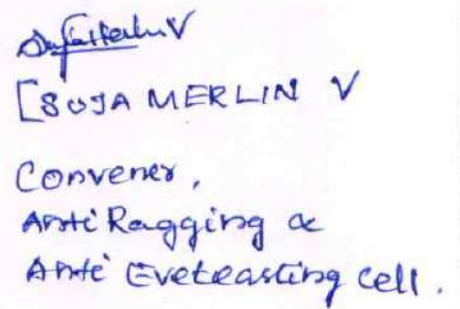 Suja Merlin V
[SUJA MERLIN V
Convener,
Anti Ragging &
Anti Eveteasting cell.